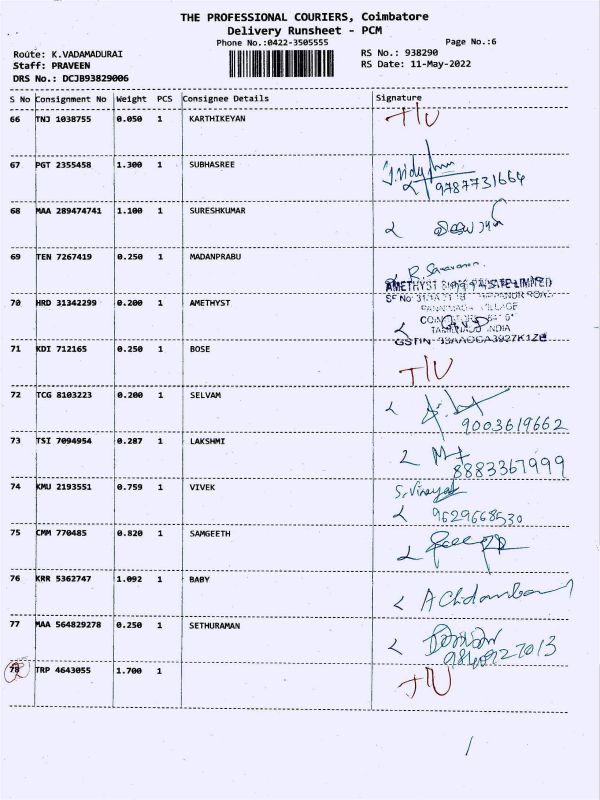 THE PROFESSIONAL COURIERS, Coimbatore
Delivery Runsheet - PCM
Phone No.:0422-3505555 Page No.:6
Route: K.VADAMADURAI RS No.: 938290
Staff: PRAVEEN RS Date: 11-May-2022
DRS No.: DCJB93829006
S No Consignment No Weight PCS Consignee Details Signature
66 TNJ 1038755 0.050 1 KARTHIKEYAN T/U
67 PGT 2355458 1.300 1 SUBHASREE
9787731664
68 MAA 289474741 1.100 1 SURESHKUMAR
69 TEN 7267419 0.250 1 MADANPRABU
R. Saravanan
AMETHYST PRIVATE LIMITED
70 HRD 31342299 0.200 1 AMETHYST
INDIA
71 KDI 712165 0.250 1 BOSE
T/U
72 TCG 8103223 0.200 1 SELVAM
9003619662
73 TSI 7094954 0.287 1 LAKSHMI
8883367999
74 KMU 2193551 0.759 1 VIVEK S. Vinayak
9629668530
75 CMM 770485 0.820 1 SAMGEETH
76 KRR 5362747 1.092 1 BABY
77 MAA 564829278 0.250 1 SETHURAMAN
78 TRP 4643055 1.700 1
T/U